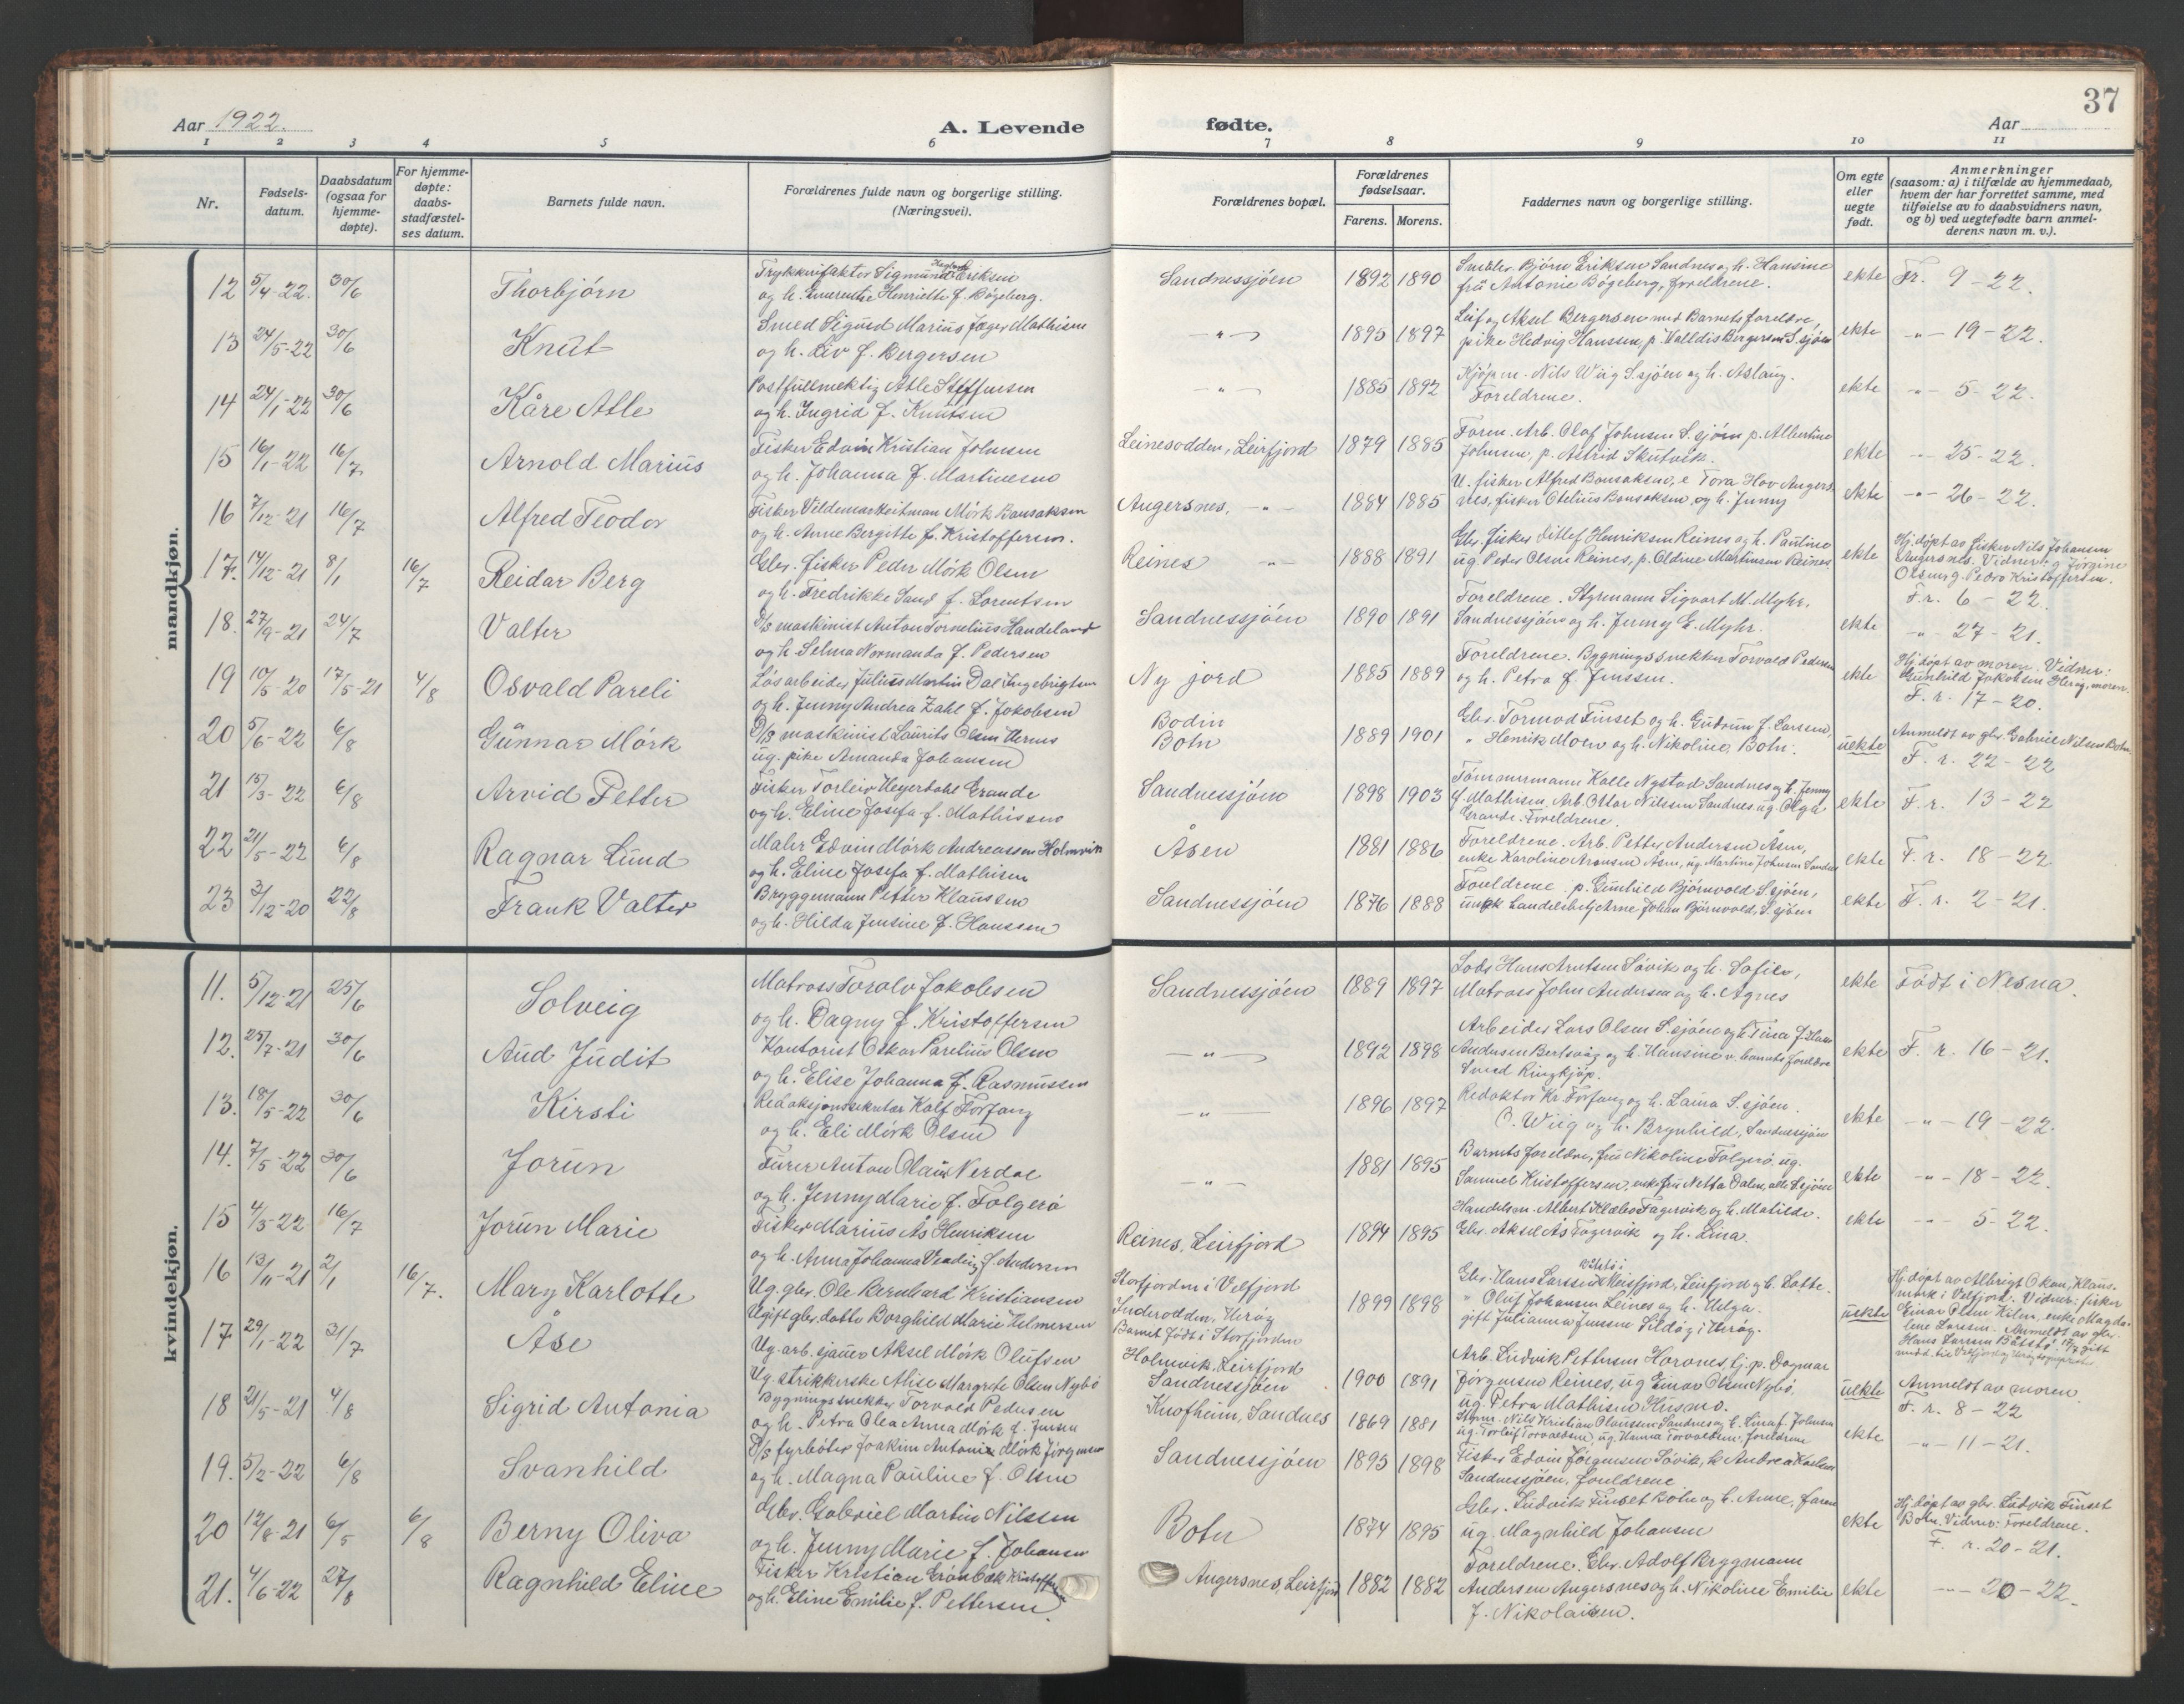 37
Aar 1922.
A. Levende fødte.
Aar
1 2 3 4 5 6 7 8 9 10 11
Nr.
Fødsels-
datum.
Daabsdatum
(ogsaa for
hjemme-
døpte).
For hjemme-
døpte:
daabs-
stadfæstel-
ses datum.
Barnets fulde navn.
Forældrenes fulde navn og borgerlige stilling.
(Næringsvei).
Forældrenes bopæl.
Forældrenes
fødselsaar.
Farens. Morens.
Faddernes navn og borgerlige stilling.
Om egte
eller
uegte
født.
Anmerkninger
(saasom: a) i tilfælde av hjemmedaab,
hvem der har forrettet samme, med
tilføielse av to daabsvidners navn,
og b) ved uegtefødte barn anmel-
derens navn m. v.).
mandkjøn.
12 5/4-22. 30/6 Thorbjørn
og h. Henriette f. Bøgeberg.
Sandnessjøen 1892 1890
frü Antonie Bøgeberg, foreldrene.
ekte Fr. 9-22.
13 24/5-22 30/6 Knüt
Smed Sigurd Mariüs Jæger Mathisen
og h. Liv f. Bergersen
-"- 1895 1897
Leif og Aksel Bergersen med Barnets foreldre,
pike Hedvig Hanssen, p. Valldis Bergersen S.sjøen
ekte -"- 19-22.
14 24/1-22 30/6 Kåre Atle
Postfüllmektig Atle Steffensen
og h. Ingrid f. Knütsen
-"- 1885 1892
Kjøpm. Nils Wiig S.sjøen og h. Aslaüg.
Foreldrene.
ekte -"- 5-22.
15 16/1-22 16/7 Arnold Mariüs
Fisker Edvin Kristian Johnsen
og h. Johanna f. Martinesen
Leinesodden, Leirfjord 1879 1885
Form. Arb. Olaf Johnsen S.sjøen p. Albertine
Johnsen, p. Astrid Skutvik.
ekte -"- 25-22.
16 7/12-21 16/7 Alfred Teodor
og h. Anne Bergitte f. Kristoffersen.
Angersnes, -"- 1884 1885
U. fisker Alfred Bonsaksen, e Tora Hov Angers-
nes, fisker Otelius Bonsaksen og h. Jenny
ekte -"- 26-22.
17. 14/12-21 8/1 16/7 Reidar Berg
Gbr. fisker Peder Mørk Olsen
og h. Fredrikke Sand f. Lorentsen
Reines -"- 1888 1891
Gbr. fisker Ditlef Henriksen Reines og h. Paüline
üg. Peder Olsen Reines, p. Oldine Martinsen Reines
ekte Hj. døpt av fisker Nils Johansen
Angersnes. Vidner: g. Jørgine
Olsen g. Pedro Kristoffersen.
F.r. 6-22.
18. 27/9-21 24/7 Valter
D/S maskinist Anton Cornelius Handeland
og h. Selma Normanda f. Pedersen
Sandnessjøen 1890 1891
Foreldrene. Styrmann Sigvart M. Myhr,
Sandnessjøen og h. Jenny E. Myhr.
ekte -"- 27-21.
19 10/5-20 17/5-21 4/8 Osvald Pareli
Løsarbeider Jüliüs Martin Dal Ingebrigtsen
og h. Jenny Andrea Zahl f. Jakobsen
Ny jord 1885 1889
Foreldrene. Bygningssnekker Torvald Pedersen
og h. Petra f. Jenssen.
ekte Hj. døpt av moren. Vidner:
Günhild Jakobsen Herøy, moren.
F.r. 17-20.
20 5/6-22 6/8 Günnar Mørk
D/S maskinist Laürits Olsen
üg. pike Amanda Johansen
Bodin
Botn 1889 1901
Gbr. Tormod Finset og h. Güdrün f. Larssen,
" Henrik Moen og h. Nikoline, Botn.
üekte Anmeldt av gbr. Gabriel Nilsen Botn
F.r. 22-22
21 15/3-22 6/8 Arvid Petter
Fisker Torleiv Heyerdahl Grande
og h. Eline Josefa f. Mathissen
Sandnessjøen 1898 1903
Tømmermann Kalle Nystad Sandnes og h. Jenny
f. Mathisen, Arb. Ottar Nilssen Sandnes üg. Olga
Grande. Foreldrene.
ekte F.r. 13-22
22 21/5-22 6/8 Ragnar Lünd
Maler Edvin Mørk Andreassen Holmvik
og h. Eline Josefa f. Mathisen
Åsen 1881 1886
Foreldrene. Arb. Petter Andersen Åsen,
enke Karoline Aronsen Åsen, üg. Martine Johnsen Sandnes
ekte F.r. 18-22
23 3/12-20 22/8 Frank Valter
Bryggemann Petter Klaüssen
og h. Hilda Jensine f. Hanssen
Sandnessjøen 1876 1888
Foreldrene. p. Günhild Bjørnvold S.sjøen,
üngk. handelsbetj. Arne Johan Bjørnvold, S.sjøen
ekte F.r. 2-21.
kvindekjøn.
11. 5/12-21 25/6 Solveig
Matross Toralv Jakobsen
og h. Dagny f. Kristoffersen
Sandnessjøen 1889 1897
Lods Hans Arntsen Søvik og h. Sofie,
Matross John Andersen og h. Agnes
ekte Født i Nesna.
12. 25/7-21 30/6 Aüd Jüdit
Kontorist Oskar Pareliüs Olsen
og h. Elise Johanna f. Rasmüssen
-"- 1892 1898
Arbeider Lars Olsen S.sjøen og h. Tina
ekte F.r. 16-21.
13. 18/5-22 30/6 Kirsti
Redaksjonssekretær Kalf Forfang
og h. Eli Mørk Olsen
-"- 1896 1897
Redaktør Kr. Forfang og h. Laüra S.sjøen.
O. Wiig og h. Brynhild, Sandnessjøen
ekte -"- 19-22.
14. 7/5-22 30/6 Jorün
Fürer Anton Olaüs Nerdal
og h. Jenny Marie f. Folgerø
-"- 1881 1895
Barnets foreldre, frü Nikoline Folgerø üg.
Samuel Kristoffersen, enkefrü Netta Dalen, alle S.sjøen
ekte -"- 18-22.
15 4/3-22 16/7 Jorün Marie
Fisker Mariüs Ås Henriksen
og h. Anna Johanna f. Andersen
Reines, Leirfjord 1894 1895
Handelsm. Albert Klæbo Fagervik og h. Matilde.
Gbr. Aksel Ås Fagervik og h. Lina.
ekte -"- 5-22.
16 13/11-21 2/1 16/7. Mary Karlotte
Ug. gbr. Ole Bernhard Kristiansen
Ugift gbr.datter Borghild Marie Helmersen
Storfjorden i Velfjord
Inderodden, Herøy
Barnet født i Storfjorden 1899 1898
Gbr. Hans Larssen Båtstø i Meisfjord, Leirfjord og h. Lotte.
" Olüf Johansen Leines og h. Helga.
gift Julianna Jenssen Sildøy i Herøy.
üekte Hj. døpt av Albrigt Okan, Klaüs-
mark i Velfjord. Vidner: fisker
Einar Olsen Kilen, enke Magda-
lene Larsen. Anmeldt av gbr.
Hans Larssen Båtstø. 17/7 gitt
17 29/1-22 31/7 Åse
Ug. arb. sjauer Aksel Mørk Olüfsen
Ug. strikkerske Alise Margrete Olsen Nybø
Holmvik, Leirfjord
Sandnessjøen 1900 1891
Arb. Lüdvik Pettersen Horsnes, tj. p. Dagmar
Jørgensen Reines, üg Einar Olsen Nybø,
üg. Petra Mathisen Hüsmo.
üekte Anmeldt av moren.
F.r. 8-22
18 21/5-21 4/8 Sigrid Antonia
Bygningssnekker Torvald Pedersen
og h. Petra Olea Anna Mørk f. Jensen
Knofheim, Sandnes 1869 1881
Styrm. Nils Kristian Olaüssen Sandnes og h. Lina f. Johnsen
üg. Torleif Torvaldsen, üg. Hanna Torvaldsen, foreldrene
ekte -"- 11-21.
19. 5/2-22 6/8 Svanhild
D/S fyrbøter Joakim Antoni Mørk Jørgensen
og h. Magna Paüline f. Olsen
Sandnessjøen 1895 1898
Fisker Edvin Jørgensen Søvik, h. Andrea Karlsen
Sandnessjøen, foreldrene
20 12/8-21 6/5 6/8 Berny Oliva
Gbr. Gabriel Martin Nilssen
og h. Jenny Marie f. Johansen
Botn 1874 1895
Gbr. Lüdvik Finset Botn og h. Anne, faren
üg. Magnhild Johansen
ekte Hj. døpt av gbr. Lüdvik Finset
Botn. Vidner: Foreldrene.
F.r. 20-21.
21. 4/6-22 27/8 Ragnhild Eline
Fisker Kristian Grønbæk Kristoffersen
og h. Eline Emilie f. Pettersen.
Angersnes, Leirfjord 1882 1882
Foreldrene. Gbr. Adolf Bryggmann
Andersen Angersnes og h. Nikoline Emilie
f. Nikolaisen.
ekte -"- 20-22.